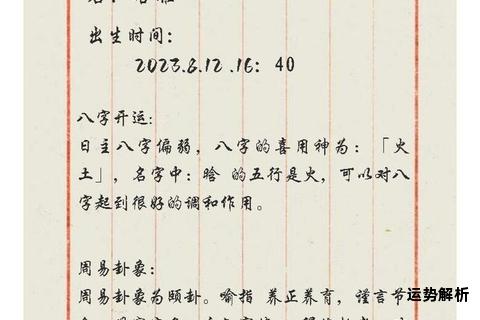 出生时间:
2023.8.12.16: 40
八字开运:
日主八字偏弱,八字的喜用神为:「火
土」,名字中:晗 的五行是火,可以对八
字起到很好的调和作用。
周易卦象:
周易卦象为颐卦。喻指 养正养育,谨言节
运势解析